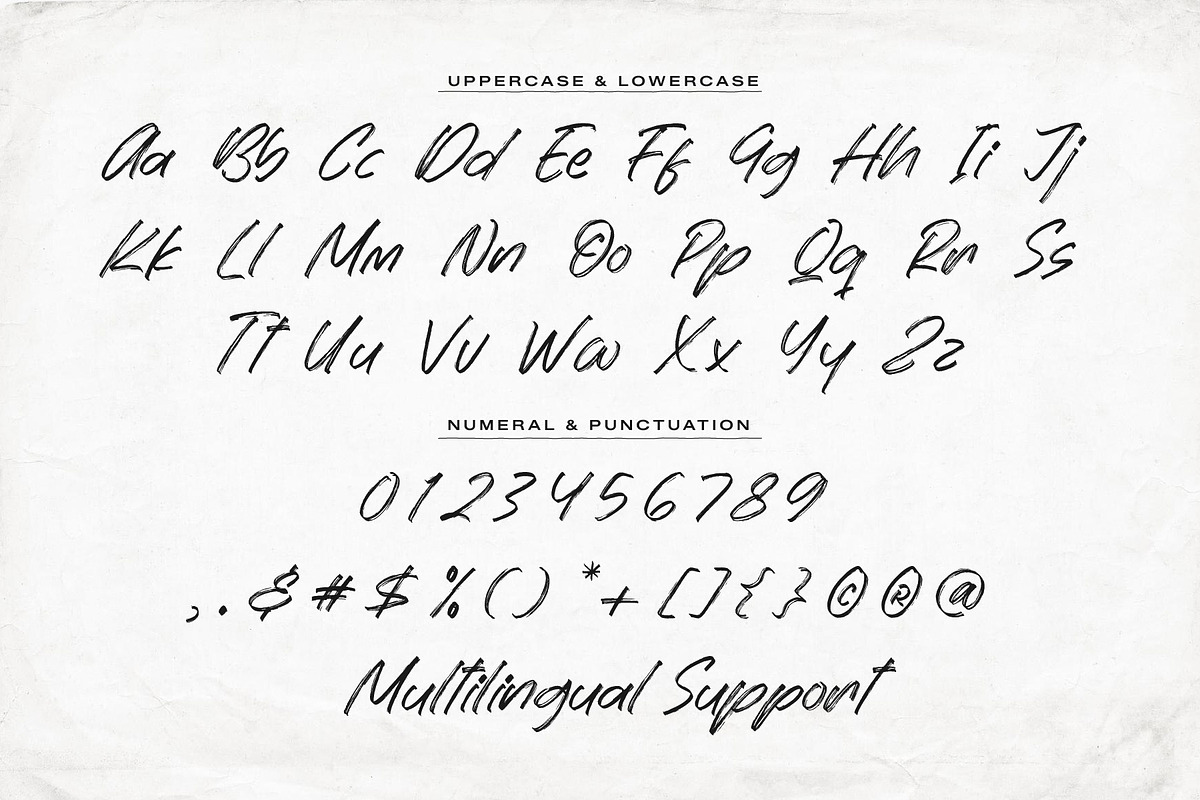 UPPERCASE & LOWERCASE
Aa Bb Cc Dd Ee Ff Gg Hh Ii Jj
Kk Ll Mm Nn Oo Pp Qq Rr Ss
Tt Uu Vv Ww Xx Yy Zz
NUMERAL & PUNCTUATION
0123456789
, . & # $ % ( ) * + [ ] { } © ® @
Multilingual Support